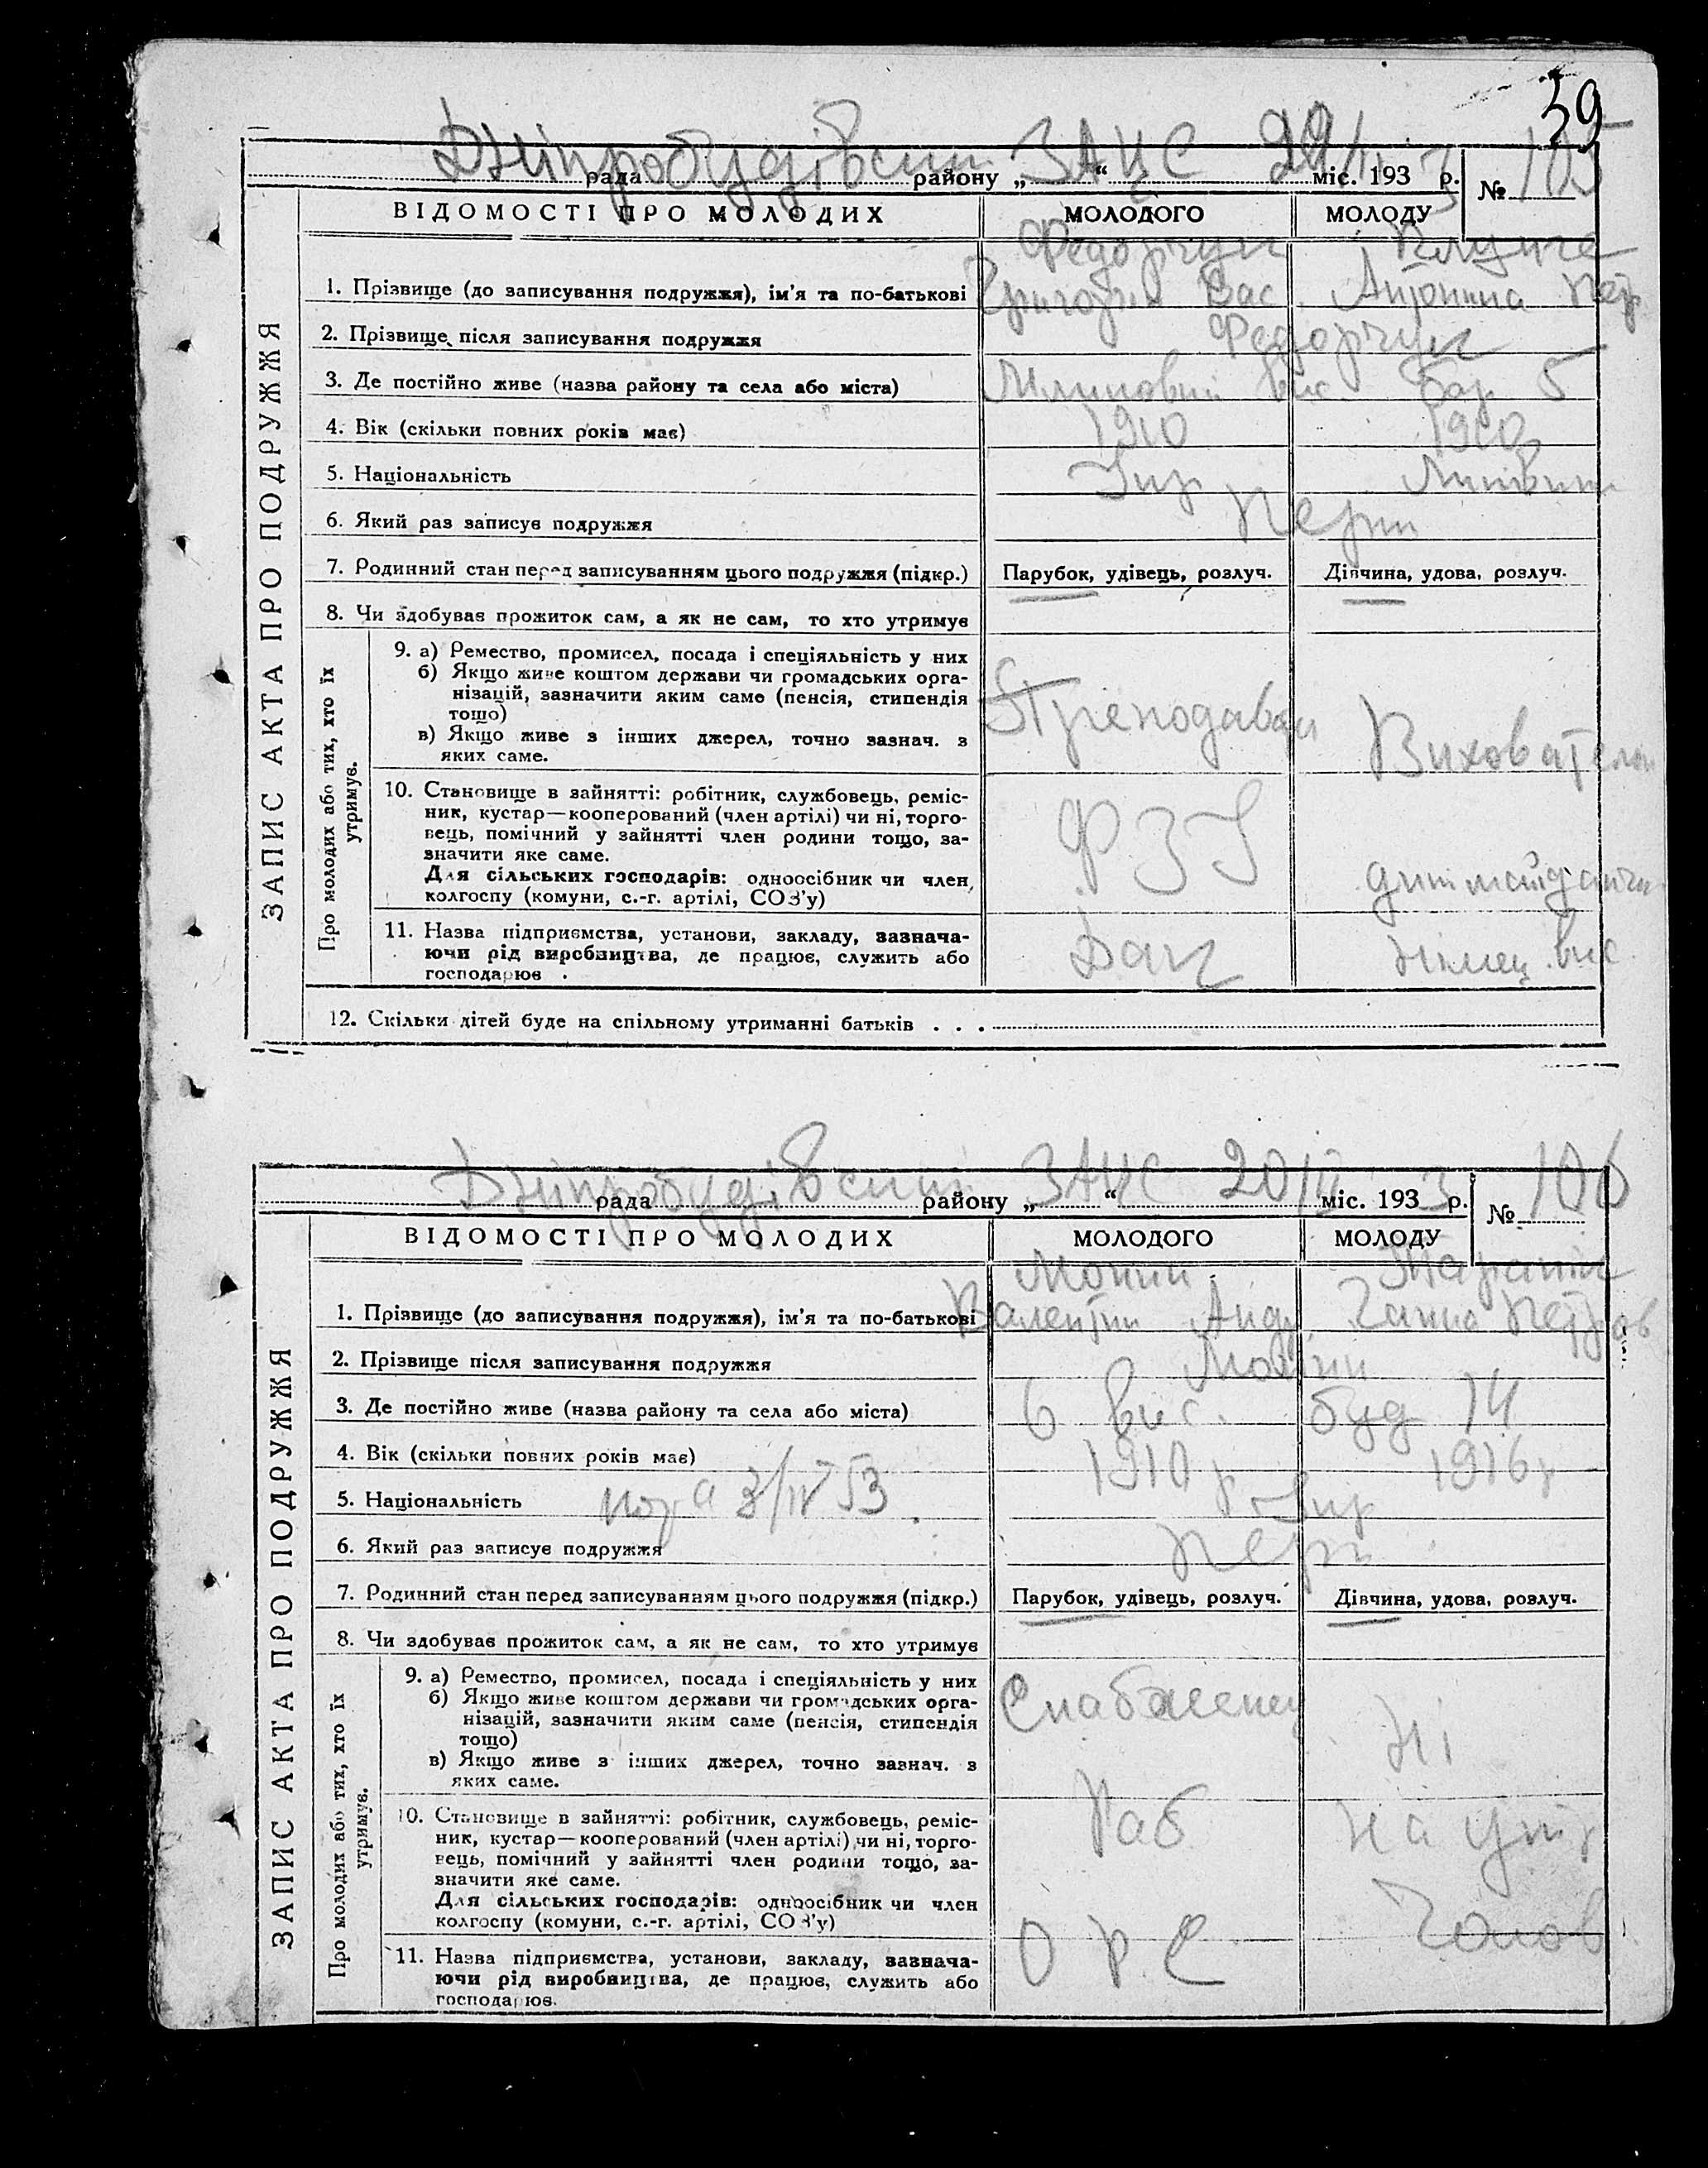 59
Дніпробудівський ЗАЦС
рада району „ “ міс. 1933 р. № 105
ВІДОМОСТІ ПРО МОЛОДИХ МОЛОДОГО МОЛОДУ
ЗАПИС АКТА ПРО ПОДРУЖЖЯ
Федорчук
1. Прізвище (до записування подружжя), ім'я та по-батькові Григорій Вас. Антоніна Петр
2. Прізвище після записування подружжя Федорчук
3. Де постійно живе (назва району та села або міста) вис. бар. 5
4. Вік (скільки повних років має) 1910 1910
5. Національність Укр
6. Який раз записує подружжя Перш
7. Родинний стан перед записуванням цього подружжя (підкр.) Парубок, удівець, розлуч. Дівчина, удова, розлуч.
8. Чи здобував прожиток сам, а як не сам, то хто утримує
Про молодих або тих, хто їх утримує.
9. а) Ремество, промисел, посада і спеціяльність у них
б) Якщо живе коштом держави чи громадських орга-
нізацій, зазначити яким саме (пенсія, стипендія
тощо)
в) Якщо живе з інших джерел, точно зазнач. з
яких саме.
Преподавач Вихователька
10. Становище в зайнятті: робітник, службовець, реміс-
ник, кустар—кооперований (член артілі) чи ні, торго-
вець, помічний у зайнятті член родини тощо, за-
значити яке саме.
Для сільських господарів: одноосібник чи член
колгоспу (комуни, с.-г. артілі, СОЗ'у)
ФЗУ
11. Назва підприємства, установи, закладу, зазнача-
ючи рід виробництва, де працює, служить або
господарює.
Німец. вис.
12. Скільки дітей буде на спільному утриманні батьків . . .
Дніпробудівський ЗАЦС 20/II
рада району „ “ міс. 1933 р. № 106
ВІДОМОСТІ ПРО МОЛОДИХ МОЛОДОГО МОЛОДУ
ЗАПИС АКТА ПРО ПОДРУЖЖЯ
1. Прізвище (до записування подружжя), ім'я та по-батькові Валентин Андр. Ганна Петров
2. Прізвище після записування подружжя
3. Де постійно живе (назва району та села або міста) 6 вис. буд 14
4. Вік (скільки повних років має) 1910 р 1916 р
5. Національність 3/IV 53. Укр
6. Який раз записує подружжя Перш
7. Родинний стан перед записуванням цього подружжя (підкр.) Парубок, удівець, розлуч. Дівчина, удова, розлуч.
8. Чи здобував прожиток сам, а як не сам, то хто утримує
Про молодих або тих, хто їх утримує.
9. а) Ремество, промисел, посада і спеціяльність у них
б) Якщо живе коштом держави чи громадських орга-
нізацій, зазначити яким саме (пенсія, стипендія
тощо)
в) Якщо живе з інших джерел, точно зазнач. з
яких саме.
Снабженец Ні
10. Становище в зайнятті: робітник, службовець, реміс-
ник, кустар—кооперований (член артілі) чи ні, торго-
вець, помічний у зайнятті член родини тощо, за-
значити яке саме.
Для сільських господарів: одноосібник чи член
колгоспу (комуни, с.-г. артілі, СОЗ'у)
Раб На утр
Чолов
11. Назва підприємства, установи, закладу, зазнача-
ючи рід виробництва, де працює, служить або
господарює.
О Р С